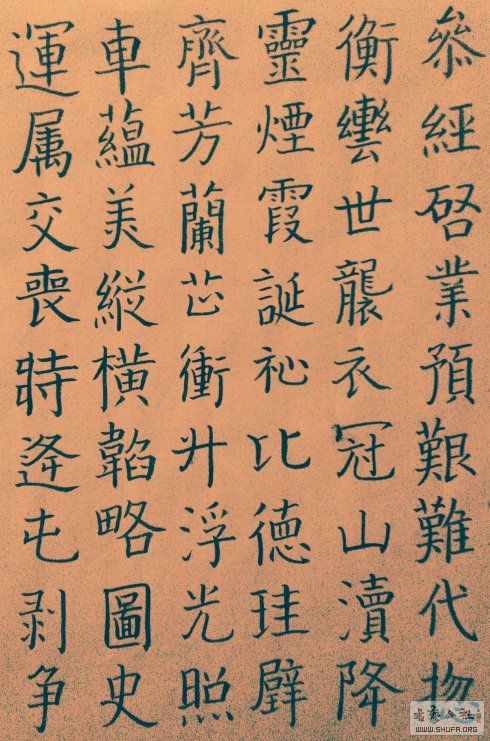 叅經啓業預艱難代物
衡轡世襲衣冠山瀆降
靈煙霞誕祕比德珪璧
齊芳蘭芷衝斗浮光照
車蘊美縱橫韜略圖史
運属交喪時逢屯剥争
WWW.SHUFA.ORG